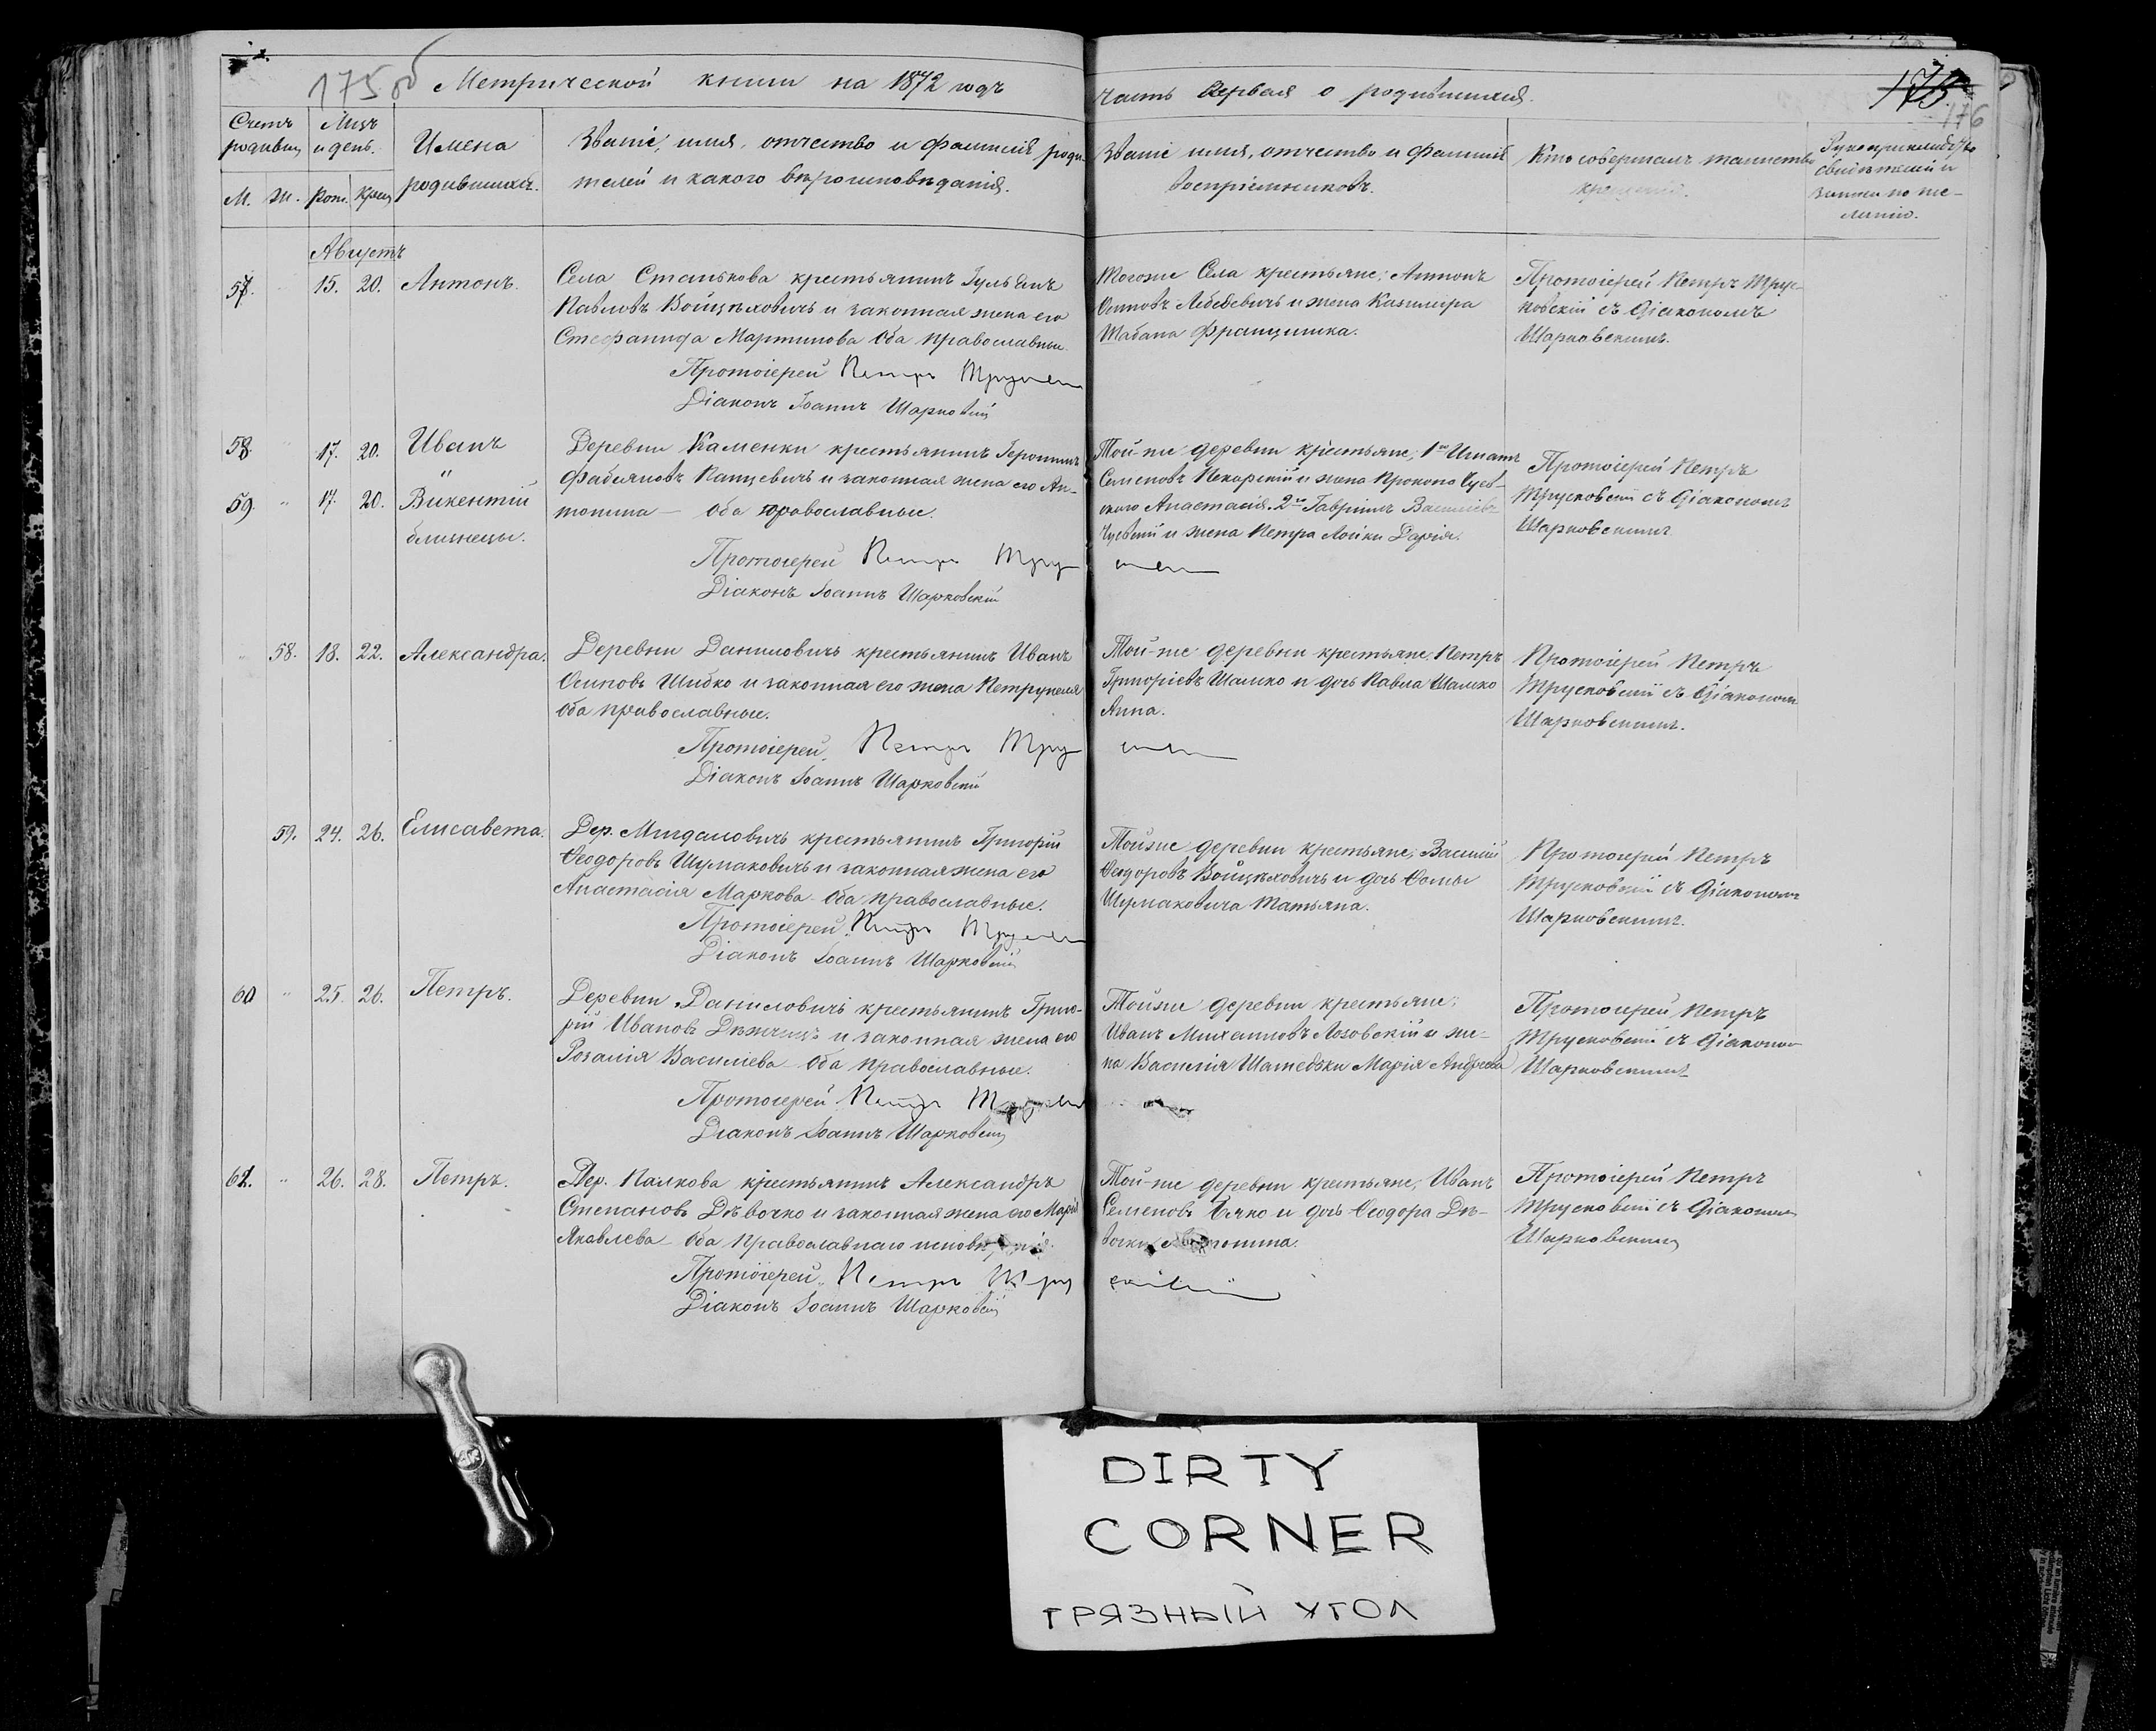 175 об Метрической книги на 1872 годъ
часть первая о родившихся.
176
Счетъ родивш.
Мцъ и день.
М. Ж. рож. крещ.
Имена родившихся.
Званіе, имя, отчество и фамилія роди-
телей и какого вѣроисповѣданія.
Званіе имя, отчество и фамилія
воспріемниковъ.
Кто совершалъ таинство
крещенія.
Рукоприкладство
свидѣтелей и
записи по же-
ланію.
Августъ
57. 15. 20. Антонъ.
Села Станькова крестьянинъ
Павловъ Войцѣховичъ и законная жена его
Стефанида Мартинова оба православные
Протоіерей Петръ
Діаконъ Іоаннъ Шарковскій
Тогоже Села крестьяне: Антонъ
Осиповъ Лебедевичъ и жена Казимира
Шабана Францишка.
Протоіерей Петръ Трус-
ковскій съ Діакономъ
Шарковскимъ.
58. " 17. 20. Иванъ
"
59. " 17. 20. Викентій
близнецы.
Деревни Каменки крестьянинъ Іеронимъ
Фабіяновъ Панцевичъ и законная жена его Ан-
тонина — оба православные.
Протоіерей Петръ
Діаконъ Іоаннъ Шарковскій
Той-же деревни крестьяне, 1хъ Игнатъ
Семеновъ Пекарскій и жена
Анастасія. 2хъ Гавріилъ
и жена Петра Лойки Дарія.
Протоіерей Петръ
Трусковскій съ Діакономъ
Шарковскимъ
58. 18. 22. Александра.
Деревни Даниловичъ крестьянинъ Иванъ
Осиповъ Шибко и законная его жена Петрунеля
оба православные.
Протоіерей Петръ
Діаконъ Іоаннъ Шарковскій
Той-же деревни крестьяне, Петръ
Григоріевъ Шашко и дочь Павла Шашко
Анна.
Протоіерей Петръ
Трусковскій съ Діакономъ
Шарковскимъ.
59. 24. 26. Елисавета.
Дер. крестьянинъ Григорій
Ѳеодоровъ Шумаковичъ и законная жена его
Анастасія Маркова оба православные.
Протоіерей Петръ
Діаконъ Іоаннъ Шарковскій
Тойже деревни крестьяне, Василій
Ѳеодоровъ Войцѣховичъ и дочь Ѳомы
Шумаковича Татьяна.
Протоіерей Петръ
Трусковскій съ Діакономъ
Шарковскимъ.
60 " 25. 26. Петръ.
Деревни Даниловичъ крестьянинъ Григо-
рій Ивановъ и законная жена его
Розалія Василіева оба православные.
Протоіерей Петръ
Діаконъ Іоаннъ Шарковскій
Тойже деревни крестьяне;
Иванъ Михаиловъ Лозовскій и же-
на Василія Марія Андреева
Протоіерей Петръ
Трусковскій съ Діакономъ
Шарковскимъ
61. " 26. 28. Петръ.
Дер. Палкова крестьянинъ Александръ
Степановъ Дѣвочко и законная жена его Марія
Яковлева оба православнаго
Протоіерей Петръ
Діаконъ Іоаннъ Шарковскій
Той-же деревни крестьяне, Иванъ
Семеновъ и дочь Ѳеодора Дѣ-
вочки
Протоіерей Петръ
Трусковскій съ Діакономъ
Шарковскимъ
DIRTY
CORNER
ГРЯЗНЫЙ УГОЛ